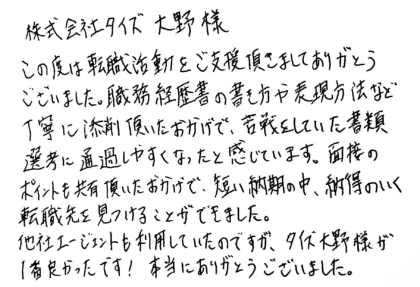 株式会社タイズ 大野様
この度は転職活動をご支援頂きましてありがとう
ございました。職務経歴書の書き方や表現方法など
丁寧に添削頂いたおかげで、苦戦をしていた書類
選考に通過しやすくなったと感じています。面接の
ポイントも共有頂いたおかげで、短い納期の中、納得のいく
転職先を見つけることができました。
他社エージェントも利用していたのですが、タイズ大野様が
1番良かったです！本当にありがとうございました。